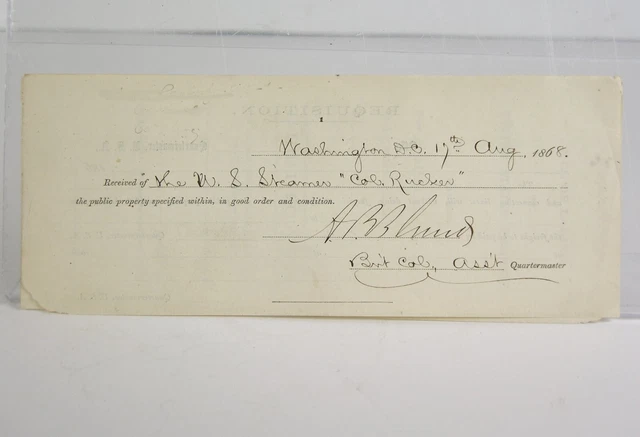 Washington D.C. 17th Aug. 1868.
Received of the U. S. Steamer "Col. Rucker"
the public property specified within, in good order and condition.
Bvt Col., Asst Quartermaster